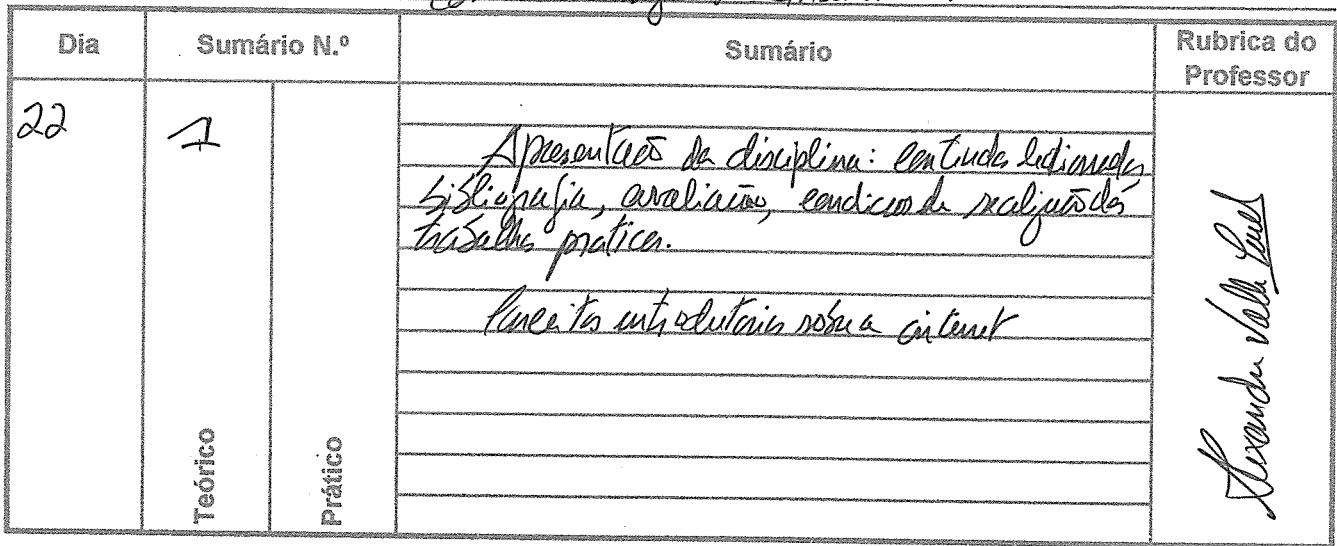 Dia Sumário N.º Sumário Rubrica do Professor
22 1
Apresentação da disciplina: conteúdos leccionados,
bibliografia, avaliação, condições de realização dos
trabalhos práticos.
Conceitos introdutórios sobre a internet
Teórico
Prático
Alexandre Valle